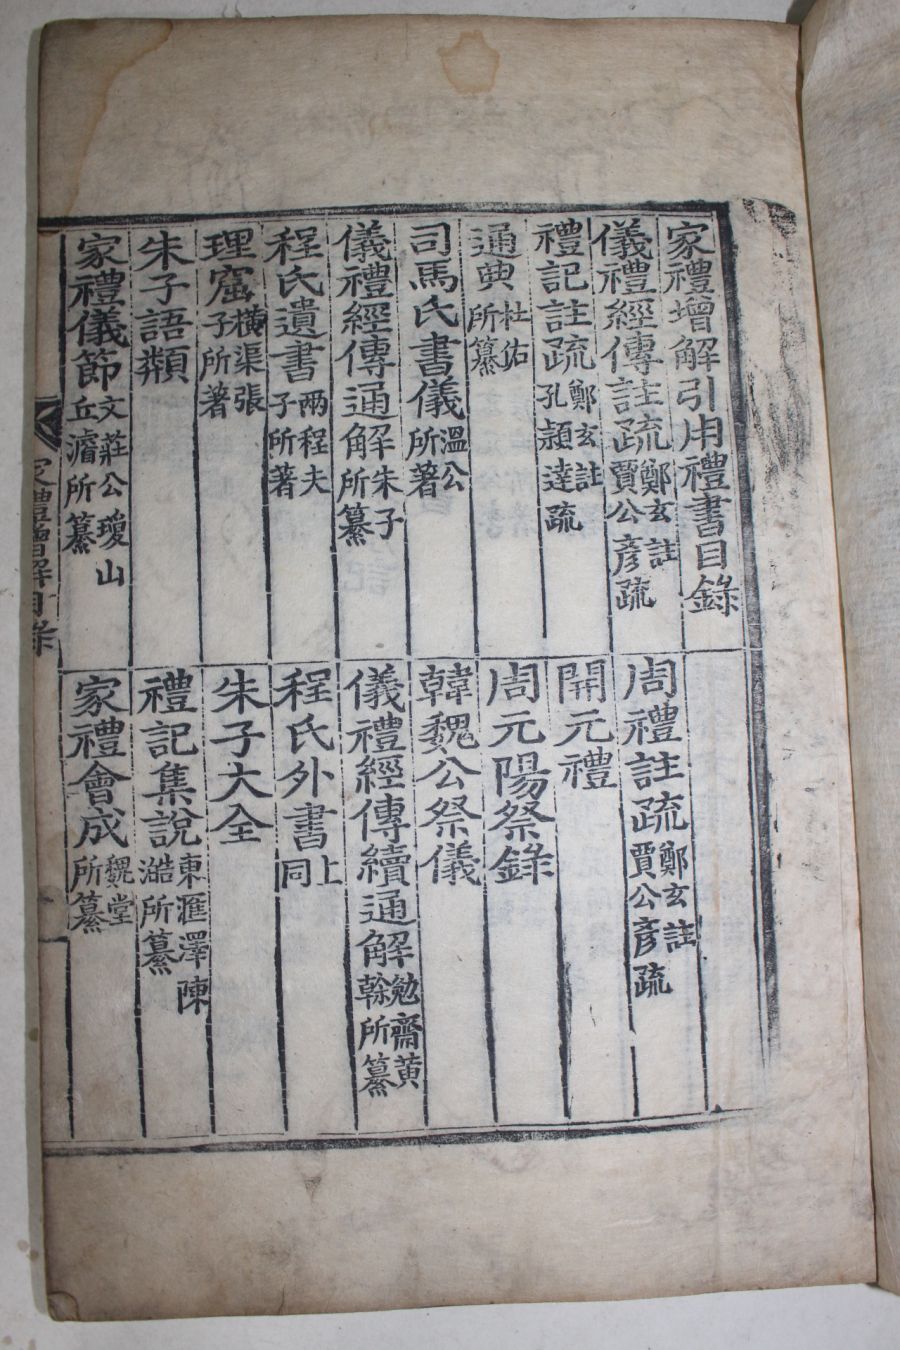 家禮增解引用禮書目錄
儀禮經傳註疏 鄭玄註 賈公彥疏
周禮註疏 鄭玄註 賈公彥疏
禮記註疏 鄭玄註 孔頴達疏
開元禮
通典 杜佑所纂
周元陽祭錄
司馬氏書儀 溫公所著
韓魏公祭儀
儀禮經傳通解 朱子所纂
儀禮經傳續通解 勉齋黃榦所纂
程氏遺書 兩程夫子所著
程氏外書 上同
理窟 橫渠張子所著
朱子大全
朱子語類
禮記集說 東滙澤陳澔所纂
家禮儀節 文莊公瓊山丘濬所纂
家禮會成 魏堂所纂
家禮增解目錄